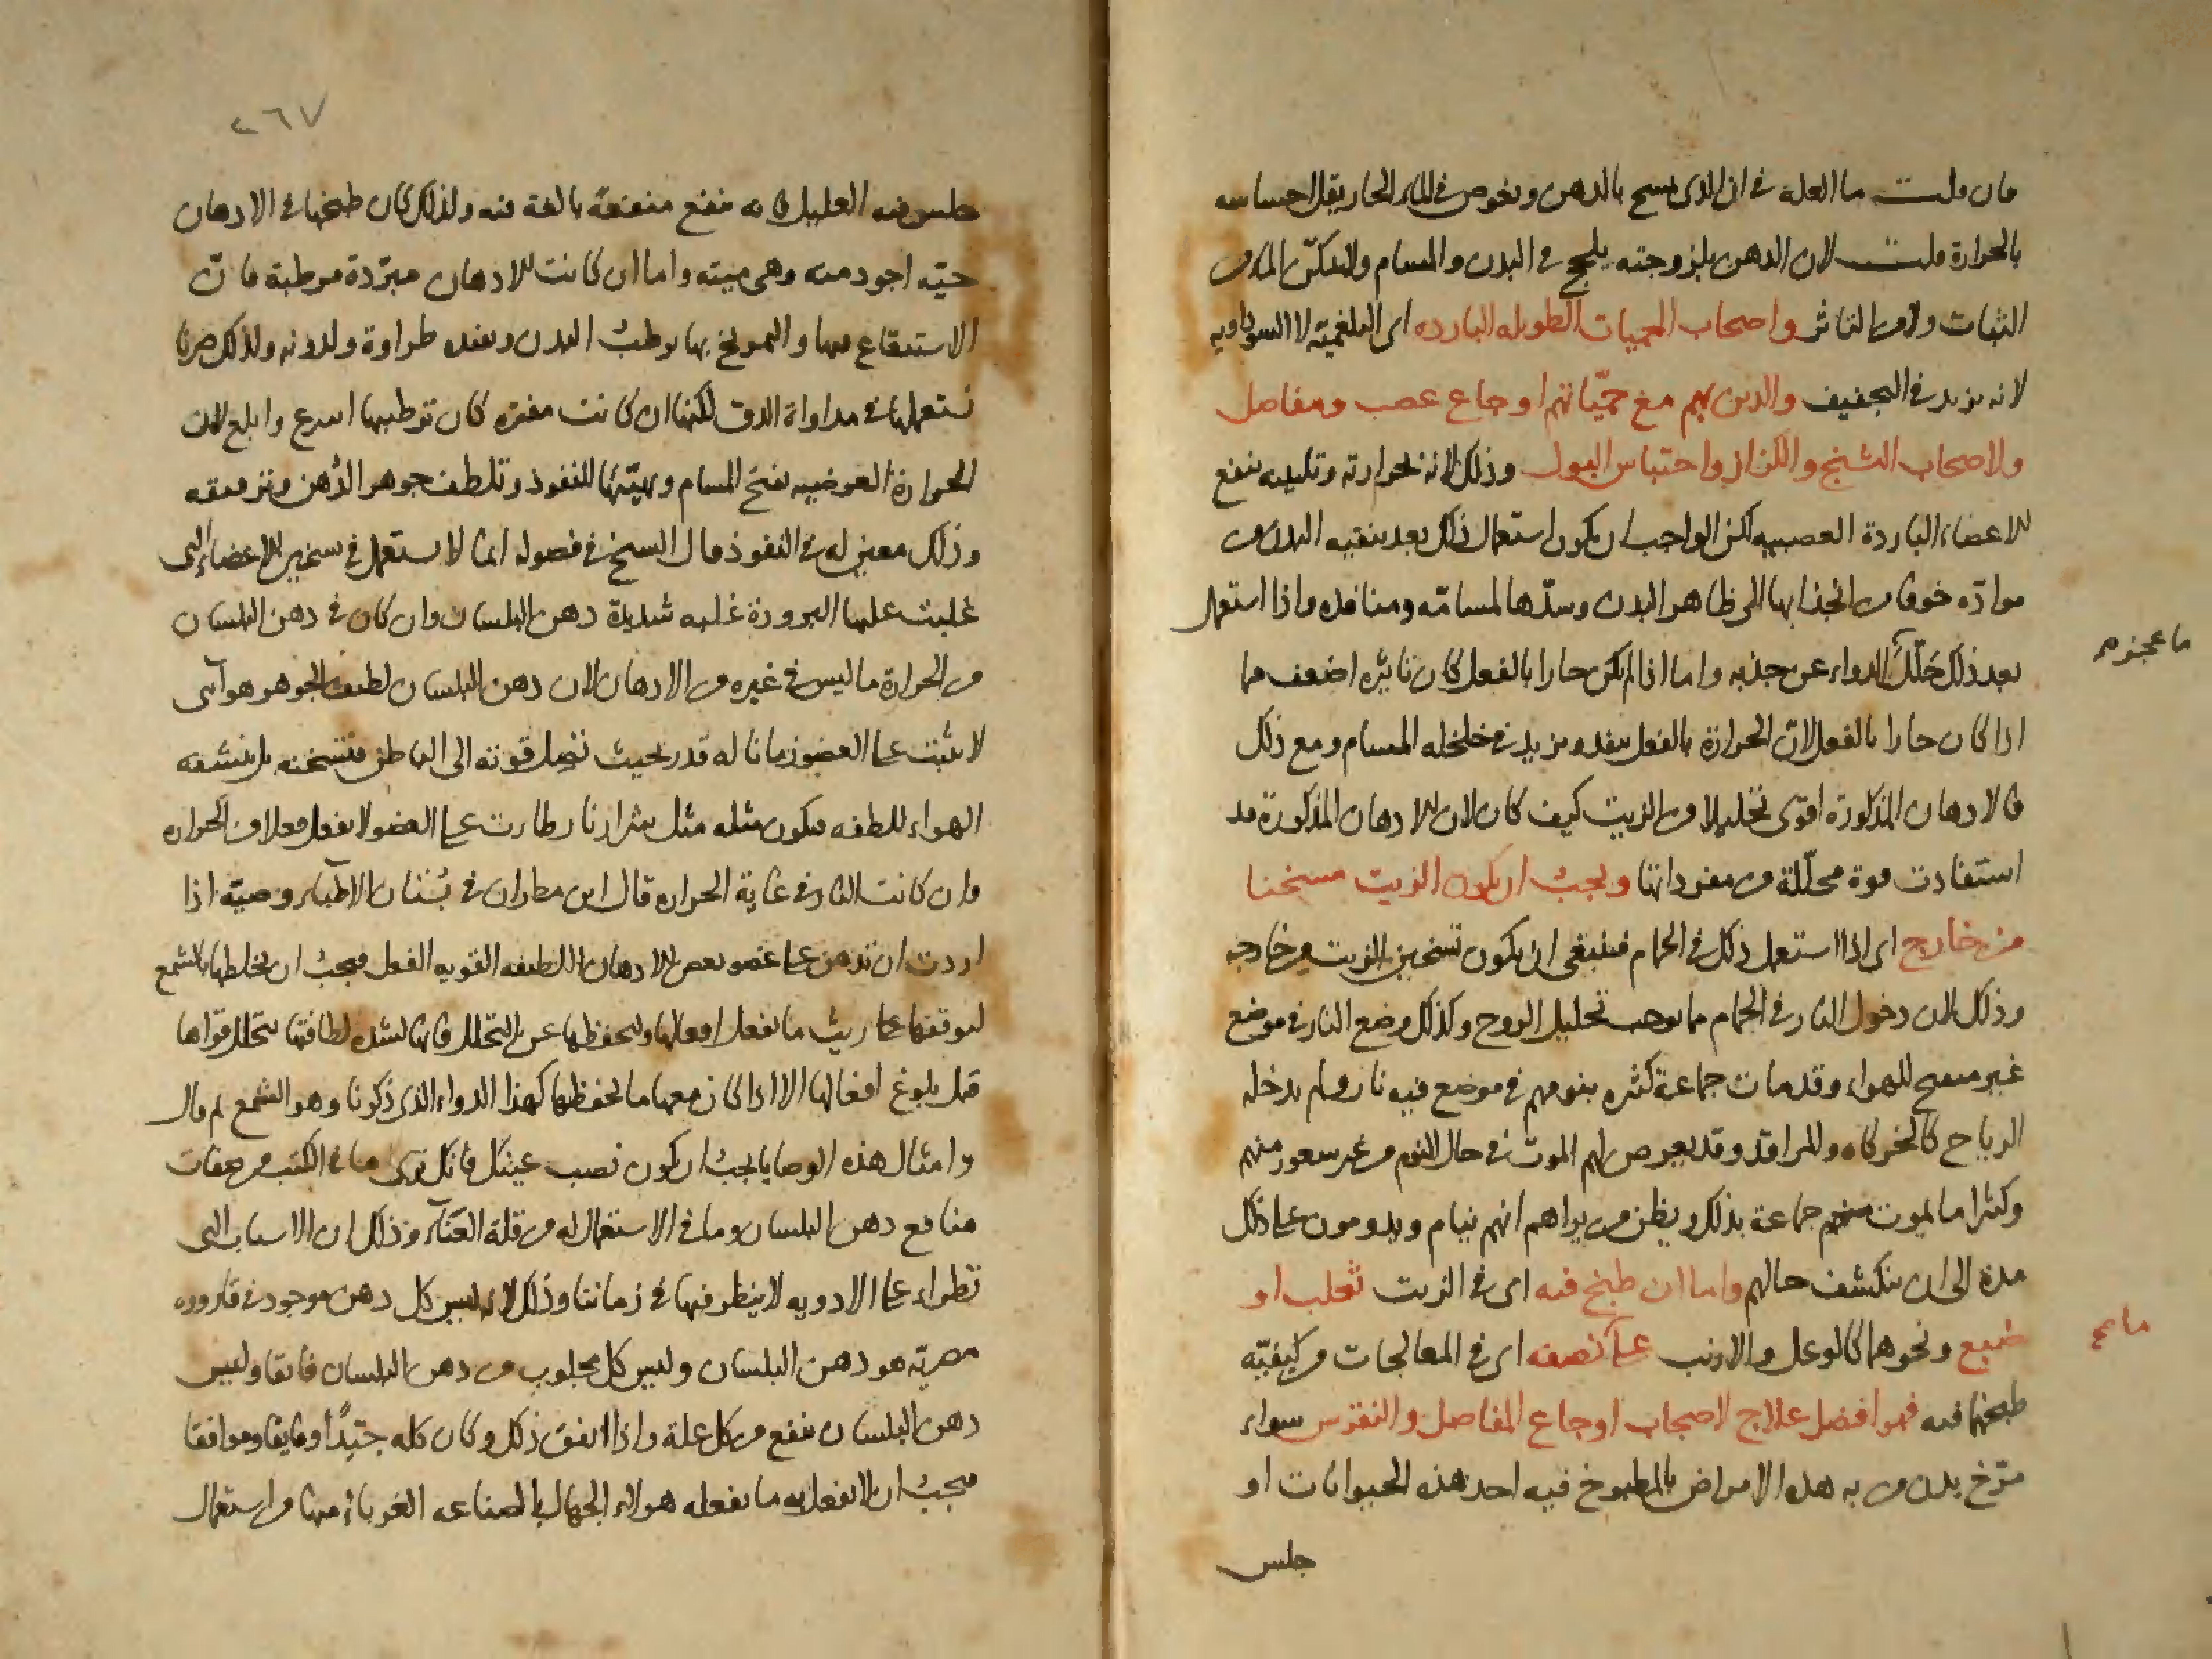 فان قلت ما العلة في ان الذي يمسح بالدهن ويغوص في الماء الحار يقل احساسه
بالحرارة قلت لان الدهن بلزوجته يلحج في البدن والمسام ولا يمكن الماء من
الثبات ولا من التاثر واصحاب الحميات الطويله البارده اى البلغميه لا السوداويه
لانه يزيد في التجفيف والذين بهم مع حمياتهم اوجاع عصب ومفاصل
ولاصحاب التشنج والكزاز واحتباس البول وذلك لانه لحرارته وتليينه ينفع
للاعضاء الباردة العصبيه لكن الواجب ان يكون استعمال ذلك بعد تنقيه البدن من
موادّه خوفا من انجذابها الى ظاهر البدن وسدّها لمسامّه ومنافذه واذا استعمل
بعد ذلك حلّل الدواء عن جذبه واما اذا لم يكن حارا بالفعل كان تاثيره اضعف مما
ما عجزه
اذا كان حارا بالفعل لانّ الحرارة بالفعل تنفده وتزيد في خلخله المسام ومع ذلك
فالادهان المذكورة اقوى تحليلا من الزيت كيف كان لان الادهان المذكورة قد
استفادت قوة محلّلة من مفرداتها ويجب ان يكون الزيت مسخنا
من خارج اى اذا استعمل ذلك في الحمام فينبغى ان يكون تسخين الزيت من خارجه
وذلك لان دخول النار في الحمام مما يوجب تحليل الروح وكذلك وضع النار في موضع
غير منفتح للهواء وقد مات جماعة كثيره بنومهم في موضع فيه نار ولم يدخله
الرياح كالخركاه والمراقد وقد يعرض لهم الموت في حال النوم من غير شعور منهم
وكثيرا ما يموت منهم جماعة بذلك ويظن من يراهم انهم نيام ويدومون على ذلك
مدة الى ان ينكشف حالهم واما ان طبخ فيه اى في الزيت ثعلب او
ضبع ونحوهما كالوعل والارنب على ما نصفه اى في المعالجات من كيفيّه
طبخها فيه فهو افضل علاج لاصحاب اوجاع المفاصل والنقرس سواء
مرّخ بدن من به هذه الامراض بالمطبوخ فيه احد هذه الحيوانات او
جلس
٢٦٧
جلس فيه العليل فانه ينفع منفعة بالغة فيه ولذلك كان طبخها في الادهان
حيّه اجود منه وهى ميته واما ان كانت الادهان مبرّدة مرطبة فانّ
الاستنقاع فيها والتمريخ بها يرطب البدن ويفيده طراوة ولدونه ولذلك صرنا
نستعملها في مداواة الدق لكنها ان كانت مفتره كان ترطيبها اسرع وابلغ لان
الحرارة العرضيه تفتح المسام وتهيّئها للنفوذ وتلطف جوهر الدهن وترققه
وذلك معين له في النفوذ قال الشيخ في فصوله انما لا يستعمل في تسخين الاعضاء التى
غلبت عليها البرودة غلبه شديدة دهن البلسان وان كان في دهن البلسان
من الحرارة ما ليس في غيره من الادهان لان دهن البلسان لطيف الجوهر هوآئى
لا يثبت على العضو زمانا له قدر بحيث تنحل قوته الى الباطن فتسخنه بل ينشفه
الهواء للطفه فيكون مثله مثل شرار نار طارت على العضو لا يفعل فعلا من الحراره
وان كانت النار في غاية الحراره قال ابن مطران في بستان الاطباء وصيّة اذا
اردت ان تدهن على عضو بعض الادهان اللطيفه القويه الفعل فيجب ان تخلطها بالشمع
ليوقفها على ريث ما تفعل افعالها وليحفظها عن التحلل فانها لشده لطافتها تتحلل قواها
قبل بلوغ افعالها الا اذا كان معها ما يحفظها كهذا الدواء الذى ذكرنا وهو الشمع ثم قال
وامثال هذه الوصايا يجب ان تكون نصب عينيك فانك ترى ما في الكتب من صفات
منافع دهن البلسان وما في الاستعمال له من قلة الغنآء وذلك ان الاسباب التى
تطراء على الادويه لا ينظر فيها في زماننا وذلك لانه ليس كل دهن موجود في قاروره
مصريّه هو دهن البلسان وليس كل مجلوب من دهن البلسان فايقا وليس
دهن البلسان ينفع من كل علة واذا اتفق ذلك وكان كله جيّدًا وفايقا وموافقا
فيجب ان لا نفعل به ما يفعله هولاء الجهال بالصناعه الغرباء منها من استعمال